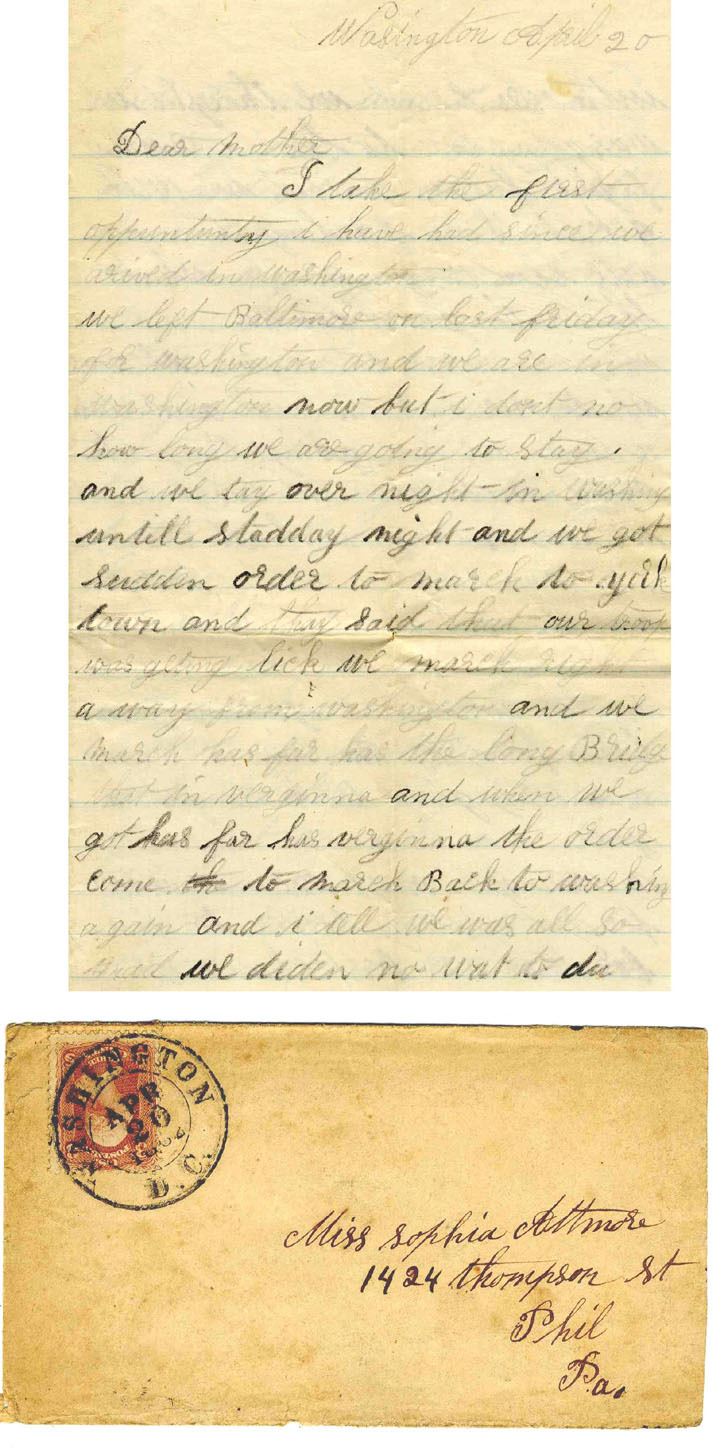 Wasington April 20
Dear mother
I take the first
oppointunty i have had since we
arived in washington
we left Baltimore on last friday
for washington and we are in
washington now but i dont no
how long we are going to stay.
and we tay over night in washing
untill stadday night and we got
sudden order to march to york
town and thay said that our troop
was geting lick we march right
a way from washington and we
march has far has the long Bridge
in verginna and when we
got has far has verginna the order
come to march Back to washing
again and i tell we was all so
mad we diden no wat to du
WASHINGTON
APR
20
1862
D.C.
Miss sophia Attmore
1424 thompson st
Phil
Pa.